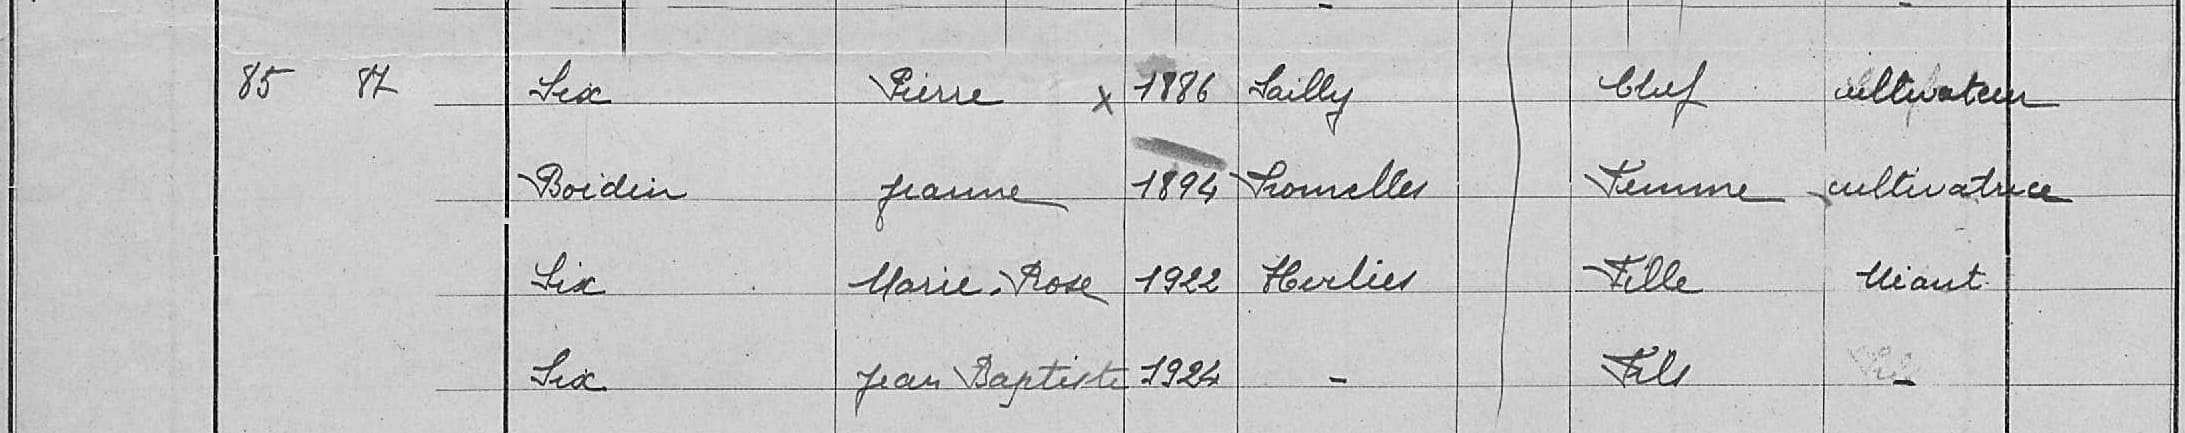 85 87 Six Pierre x 1886 Sailly Chef cultivateur
Boidin Jeanne 1894 Fromelles Femme cultivatrice
Six Marie-Rose 1922 Herlies Fille Néant
Six Jean Baptiste 1924 - Fils -